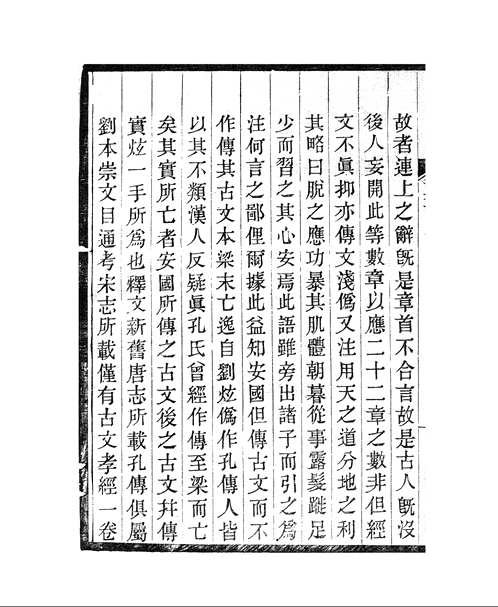 故者連上之辭旣是章首不合言故是古人旣沒
後人妄開此等數章以應二十二章之數非但經
文不眞抑亦傳文淺僞又注用天之道分地之利
其略曰脫之應功暴其肌體朝暮從事露髮跣足
少而習之其心安焉此語雖旁出諸子而引之爲
注何言之鄙俚爾據此益知安國但傳古文而不
作傳其古文本梁末亡逸自劉炫僞作孔傳人皆
以其不類漢人反疑眞孔氏曾經作傳至梁而亡
矣其實所亡者安國所傳之古文後之古文幷傳
實炫一手所爲也釋文新舊唐志所載孔傳俱屬
劉本崇文目通考宋志所載僅有古文孝經一卷